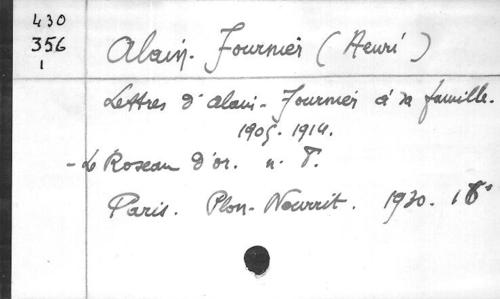 430
356
1
Alain-Fournier (Henri)
Lettres d'Alain-Fournier à sa famille.
1905-1914.
- Le Roseau d'or. n.
Paris. Plon-Nourrit. 1930.